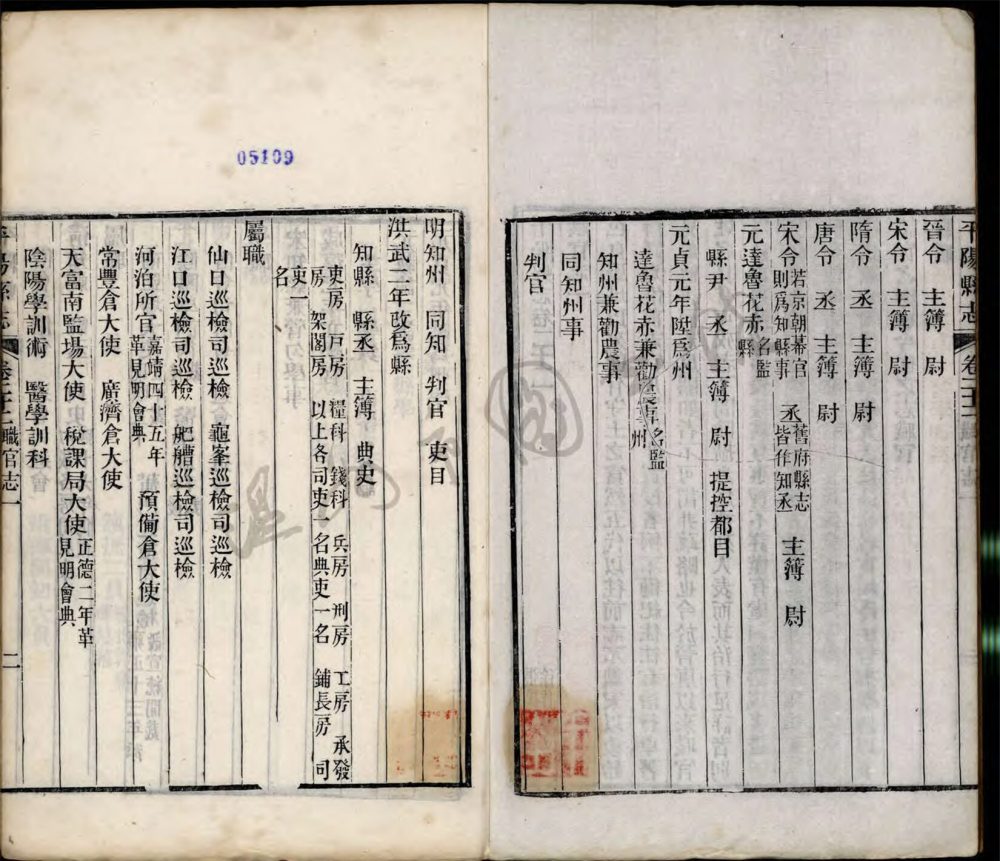 平陽縣志 卷二十二 職官志一
晉令 主簿 尉
宋令 主簿 尉
隋令 丞 主簿 尉
唐令 丞 主簿 尉
宋令若京朝幕官則爲知縣事 丞舊府縣志皆作知丞 主簿 尉
元達魯花赤名監縣
縣尹 丞 主簿 尉 提控都目
元貞元年陞爲州
達魯花赤兼勸農事名監州
知州兼勸農事
同知州事
判官
05109
明知州 同知 判官 吏目
洪武二年改爲縣
知縣 縣丞 主簿 典史
吏房 戸房 糧科 錢科 兵房 刑房 工房 承發
房 架閣房 以上各司吏一名典吏一名 鋪長房 司
吏一
名
屬職
仙口巡檢司巡檢 龜峯巡檢司巡檢
江口巡檢司巡檢 舥艚巡檢司巡檢
河泊所官嘉靖四十五年革見明會典 預備倉大使
常豐倉大使 廣濟倉大使
天富南監場大使 稅課局大使正德二年革見明會典
陰陽學訓術 醫學訓科
平陽縣志 卷二十二 職官志一 二